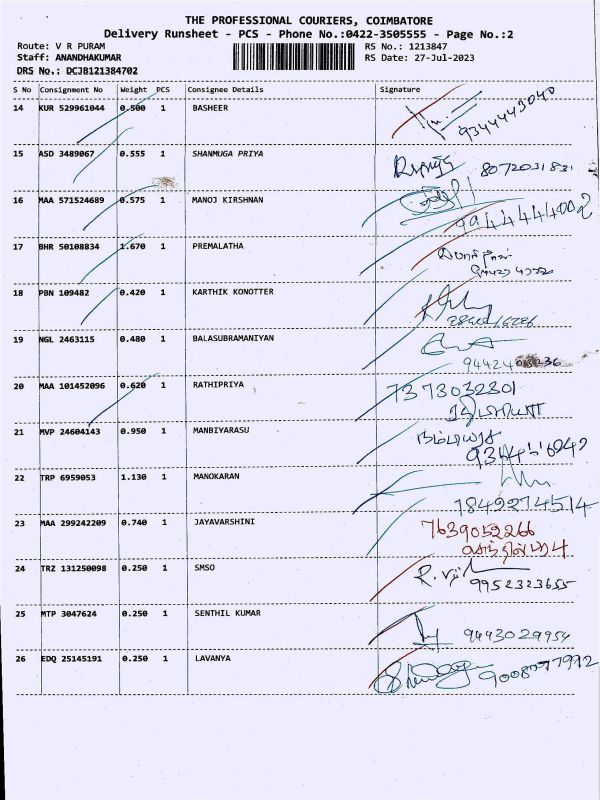 THE PROFESSIONAL COURIERS, COIMBATORE
Delivery Runsheet - PCS - Phone No.:0422-3505555 - Page No.:2
Route: V R PURAM RS No.: 1213847
Staff: ANANDHAKUMAR RS Date: 27-Jul-2023
DRS No.: DCJB121384702
S No Consignment No Weight PCS Consignee Details Signature
14 KUR 529961044 0.500 1 BASHEER
9344443040
15 ASD 3489067 0.555 1 SHANMUGA PRIYA
8072031831
16 MAA 571524689 0.575 1 MANOJ KIRSHNAN
9944444002
17 BHR 50108834 1.670 1 PREMALATHA
18 PBN 109482 0.420 1 KARTHIK KONOTTER
19 NGL 2463115 0.480 1 BALASUBRAMANIYAN
20 MAA 101452096 0.620 1 RATHIPRIYA 7373032301
ரதிபிரியா
21 MVP 24604143 0.950 1 MANBIYARASU
22 TRP 6959053 1.130 1 MANOKARAN
23 MAA 299242209 0.740 1 JAYAVARSHINI 7639052266
24 TRZ 131250098 0.250 1 SMSO
9952323655
25 MTP 3047624 0.250 1 SENTHIL KUMAR
9493029954
26 EDQ 25145191 0.250 1 LAVANYA
9008077912